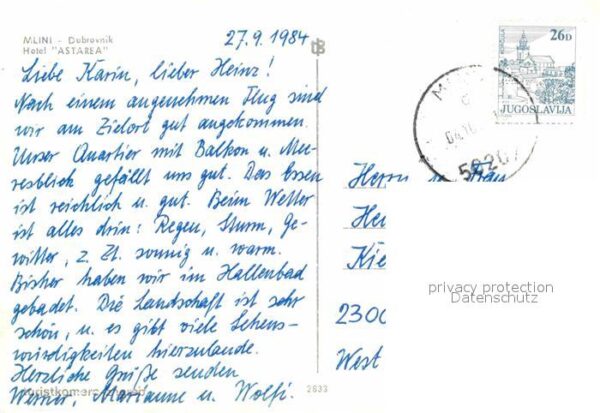 MLINI - Dubrovnik
Hotel "ASTAREA"
27.9.1984
Liebe Karin, lieber Heinz!
Nach einem angenehmen Flug sind
wir am Zielort gut angekommen.
Unser Quartier mit Balkon u. Mee-
resblick gefällt uns gut. Das Essen
ist reichlich u. gut. Beim Wetter
ist alles drin: Regen, Sturm, Ge-
witter, z. Zt. sonnig u. warm.
Bisher haben wir im Hallenbad
gebadet. Die Landschaft ist sehr
schön, u. es gibt viele Sehens-
würdigkeiten hierzulande.
Herzliche Grüße senden
Werner, Marianne u. Wolfi.
2633
26D
JUGOSLAVIJA
58207
Herrn u. Frau
Hei
Kie
privacy protection
Datenschutz
2300
West